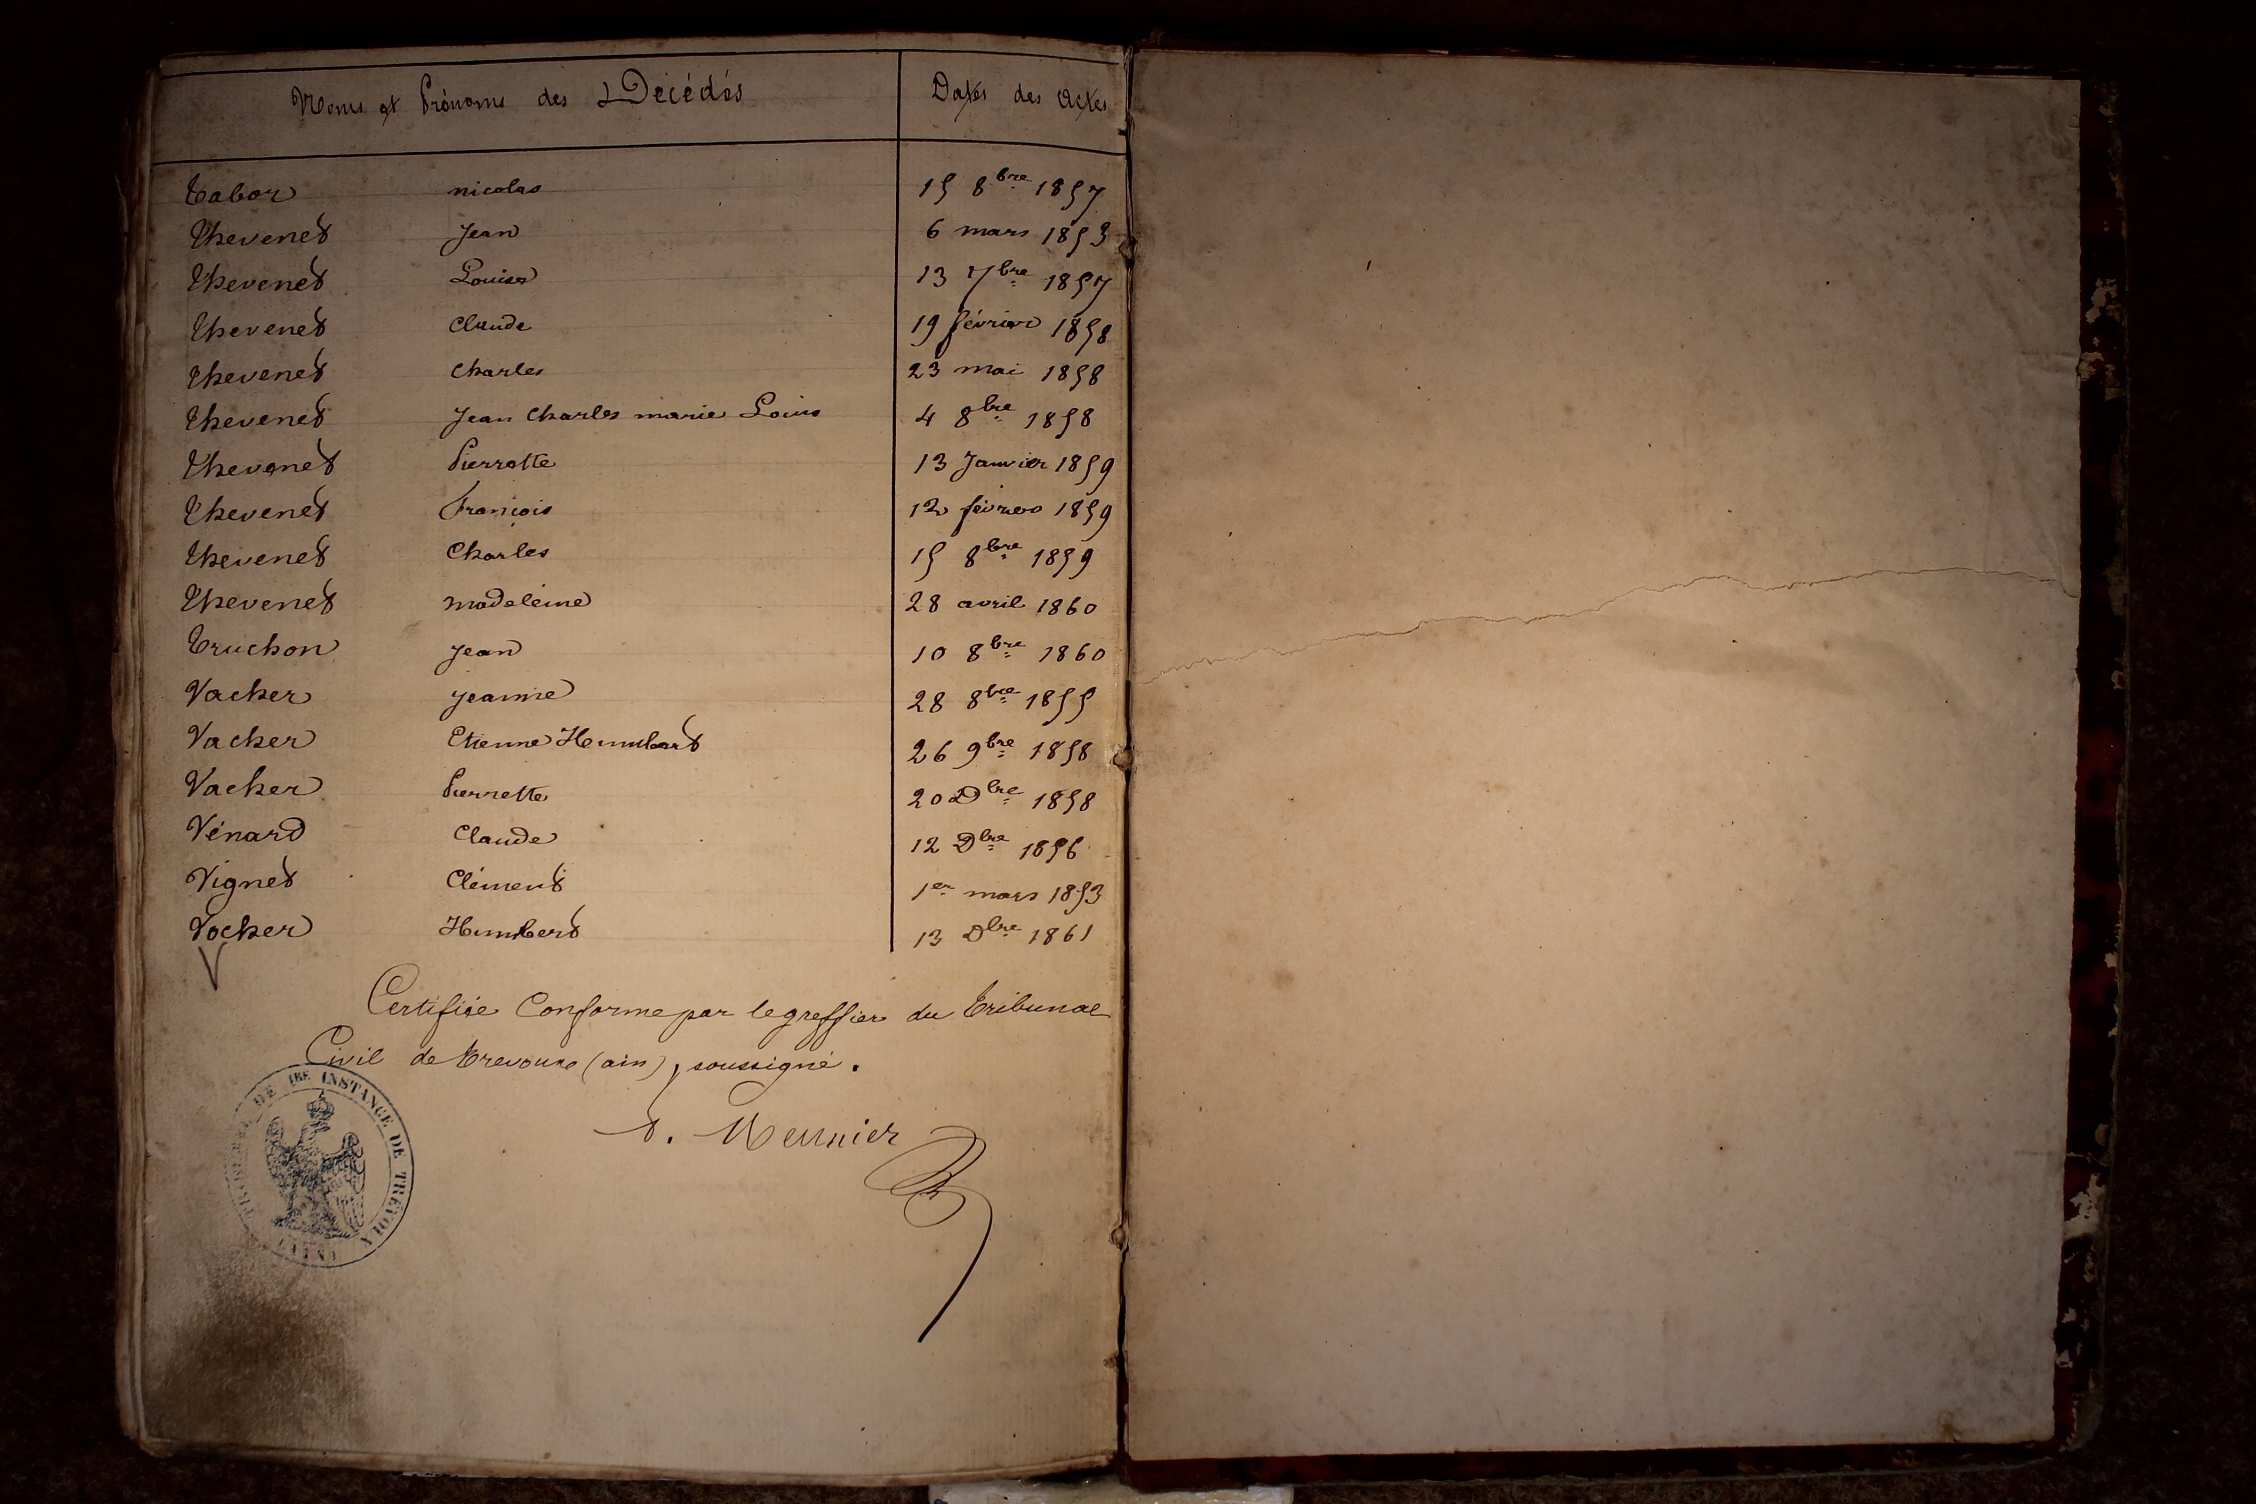 Noms et Prénoms des Décédés Dates des Actes
Tabor nicolas 15 8bre 1857
Thevenet Jean 6 mars 1853
Thevenet Louise 13 7bre 1857
Thevenet Claude 19 février 1858
Thevenet Charles 23 mai 1858
Thevenet Jean Charles marie Louis 4 8bre 1858
Thevenet Pierrette 13 Janvier 1859
Thevenet François 12 février 1859
Thevenet Charles 15 8bre 1859
Thevenet madeleine 28 avril 1860
Truchon Jean 10 8bre 1860
Vacher Jeanne 28 8bre 1855
Vacher Etienne Humbert 26 9bre 1858
Vacher Pierrette 20 Dbre 1858
Vénard Claude 12 Dbre 1856
Vignet Clément 1er mars 1853
Vocher Humbert 13 Dbre 1861
Certifiée Conforme par le greffier du Tribunal
Civil de Trevoux (ain), soussigné.
DE 1RE INSTANCE DE TRÉVOUX
Meunier